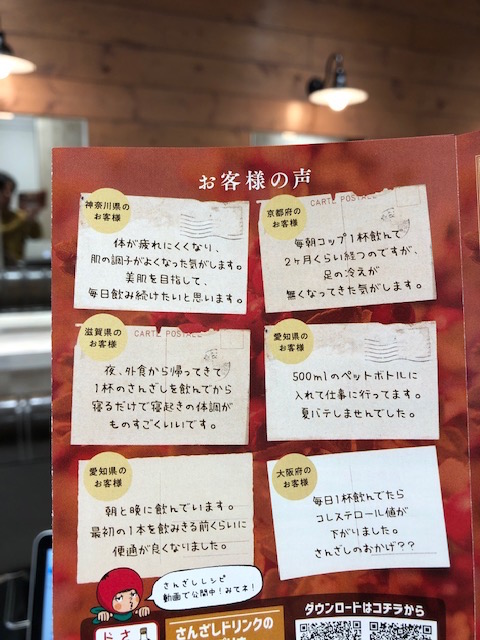 お客様の声
神奈川県の
お客様
体が疲れにくくなり、
肌の調子がよくなった気がします。
美肌を目指して、
毎日飲み続けたいと思います。
京都府の
お客様
CARTE POSTALE
毎朝コップ1杯飲んで
2ヶ月くらい経つのですが、
足の冷えが
無くなってきた気がします。
滋賀県の
お客様
CARTE POSTALE
夜、外食から帰ってきて
1杯のさんざしを飲んでから
寝るだけで寝起きの体調が
ものすごくいいです。
愛知県の
お客様
500mlのペットボトルに
入れて仕事に行ってます。
夏バテしませんでした。
愛知県の
お客様
朝と晩に飲んでいます。
最初の1本を飲みきる前くらいに
便通が良くなりました。
大阪府の
お客様
毎日1杯飲んでたら
コレステロール値が
下がりました。
さんざしのおかげ??
さんざしレシピ
動画で公開中!みてネ!
ダウンロードはコチラから
さんざしドリンクの